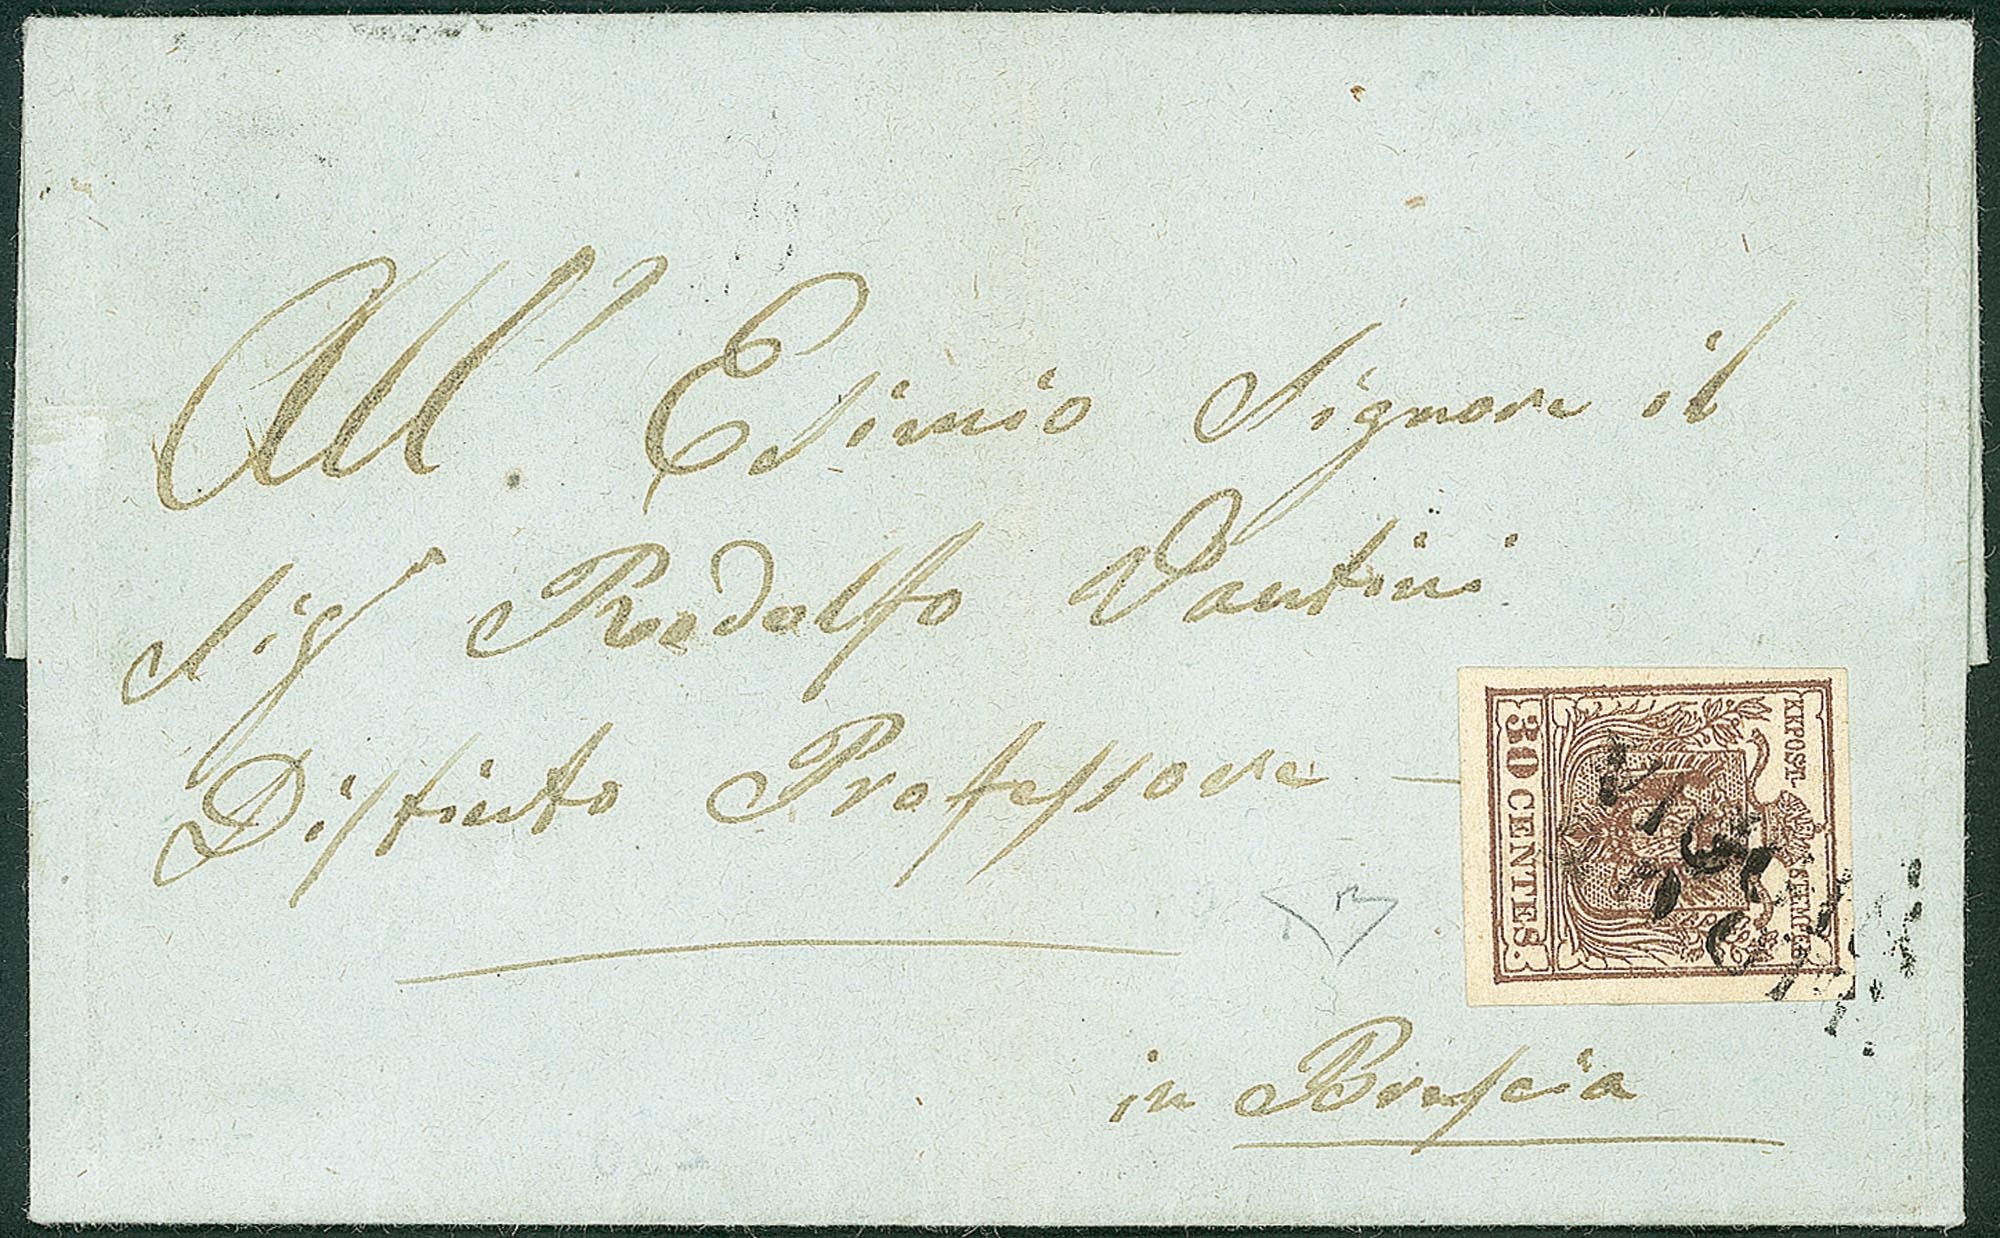 All' Esimio Signore il
Sigr Rodolfo Vantini
Distinto Professore
in Brescia
KKPOST-STEMPEL
30 CENTES.